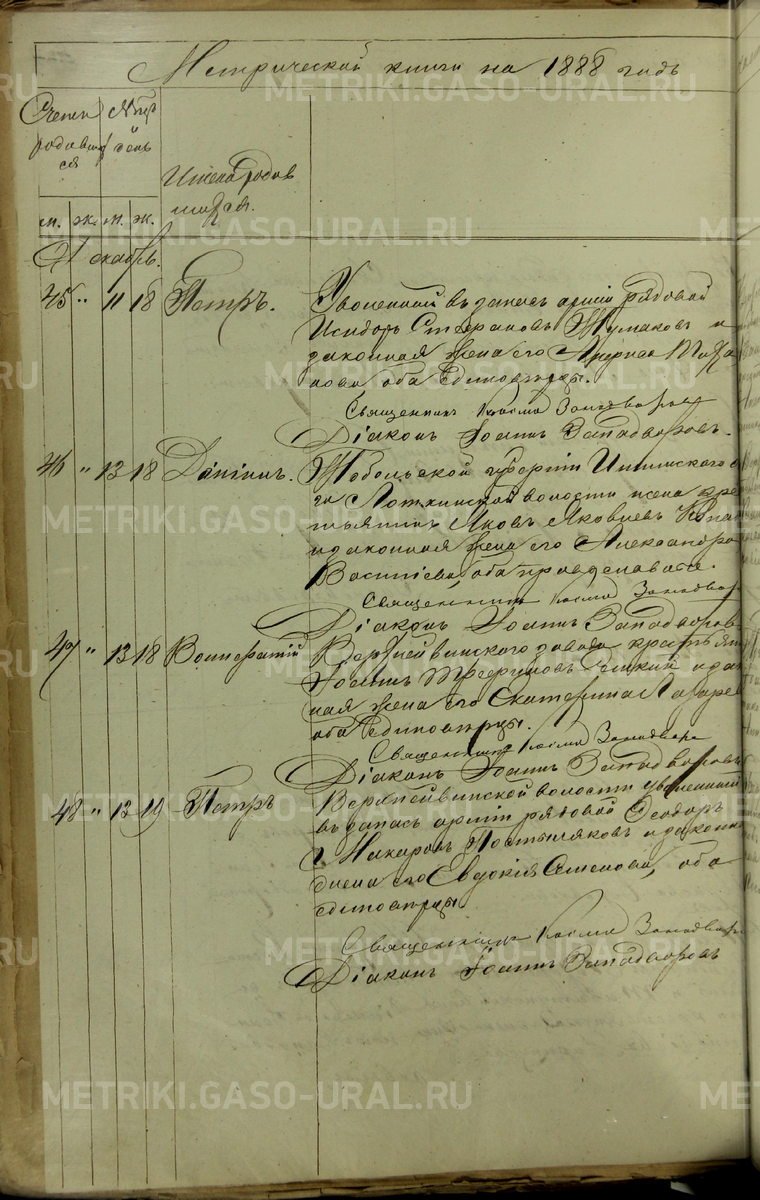 Метрической книги на 1888 годъ
Счетъ родившихся
Мѣсяцъ и день
Имена родившихся.
м. ж. м. ж.
Декабрь.
45 " 11 18 Петръ.
Уволенный въ запасъ арміи рядовой
Исидоръ Стефановъ и
законная жена его
оба единовѣрцы.
Священникъ Косма Западворовъ
Діаконъ Іоаннъ Западворовъ.
46 " 13 18 Даніилъ.
Тобольской губерніи Ишимскаго
волости
Яковъ Яковлевъ
и законная жена его Александра
Васильева, оба православные.
Священникъ Косма Западвор
Діаконъ Іоаннъ Западворовъ
47 " 13 18 Вонифатій
Верхнейвинскаго завода крестьян
Іоаннъ Трефиловъ и закон
ная жена его Екатерина Лазаре
оба единовѣрцы.
Священникъ Косма Западворо
Діаконъ Іоаннъ Западворовъ
48 " 13 19 Петръ
Верхнейвинской волости уволенный
въ запасъ арміи рядовой Ѳеодоръ
Макаровъ Постыляковъ и законн
жена его Евдокія Семенова, оба
единовѣрцы.
Священникъ Косма Западвор
Діаконъ Іоаннъ Западворовъ
METRIKI.GASO-URAL.RU